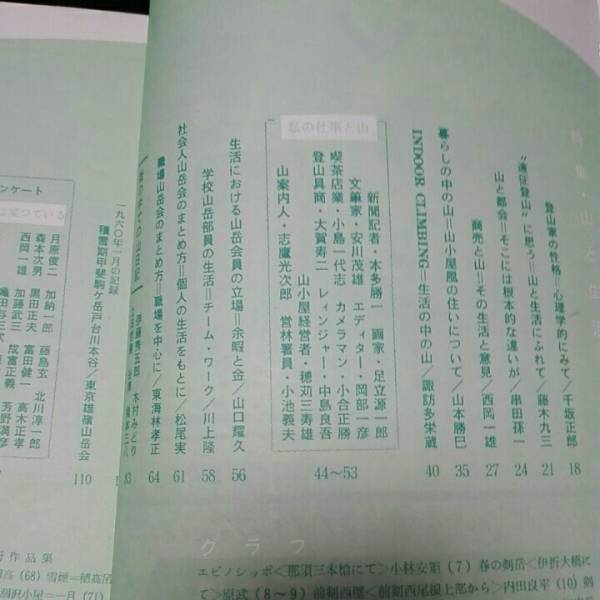 特集・山と生活
登山家の性格＝心理学的にみて／千坂正郎 18
“遠征登山”に思う＝山と生活にふれて／藤木九三 21
山と都会＝そこには根本的な違いが／串田孫一 24
商売と山＝その生活と意見／西岡一雄 27
暮らしの中の山＝山小屋風の住いについて／山本勝巳 35
INDOOR CLIMBING＝生活の中の山／諏訪多栄蔵 40
私の仕事と山
新聞記者・本多勝一 画家・足立源一郎
文筆家・安川茂雄 エディター・岡部一彦
喫茶店業・小島一代志 カメラマン・小合正勝
登山具商・大賀寿二 レィンジャー・中島良吾
山小屋経営者・穂苅三寿雄
山案内人・志鷹光次郎 営林署員・小池義夫
44～53
生活における山岳会員の立場＝余暇と金／山口耀久 56
学校山岳部員の生活＝チーム・ワーク／川上隆 58
社会人山岳会のまとめ方＝個人の生活をもとに／松尾実 61
職場山岳会のまとめ方＝職場を中心に／東海林孝正 64
木村みどり
83
一九六〇年一月の記録
積雪期甲斐駒ケ岳戸台川本谷／東京雄嶺山岳会 110
ンケート
月原俊二 加納一郎 藤島玄 北川淳一郎
森本次男 黒田正夫 富田健一 高木正孝
西岡一雄 加藤武三 成富正義
グラフ
エビノシッポ＜那須三本槍にて＞小林安矩(7) 春の剣岳＜伊折大橋に
て＞原武(8～9) 前剣西壁＜前剣西尾根上部から＞内田良平(10) 剣
作品集
(68) 雪煙＝穂高
涸沢小屋＝一月(71)